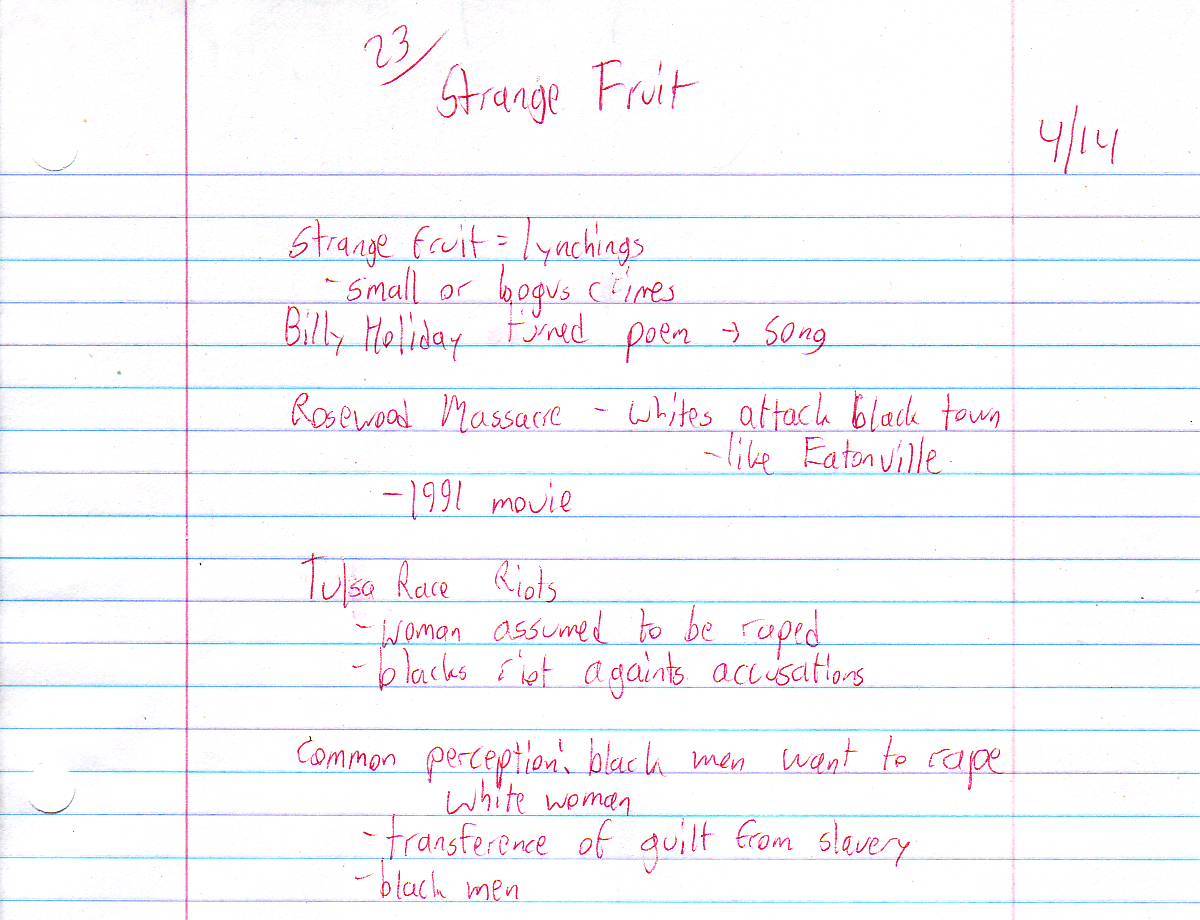 23/
Strange Fruit
4/14
Strange Fruit = lynchings
- small or bogus crimes
Billy Holiday turned poem → song
Rosewood Massacre - whites attack black town
- like Eatonville
- 1991 movie
Tulsa Race Riots
- woman assumed to be raped
- blacks riot againts accusations
Common perception: black men want to rape
white woman
- transference of guilt from slavery
- black men